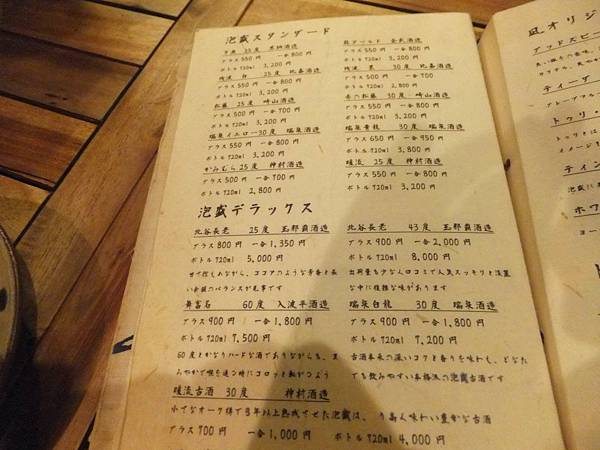 泡盛スタンダード
25度 忠孝酒造
グラス 550円 一合 800円
ボトル 720ml 3,200円
残波 白 25度 比嘉酒造
グラス 500円 一合 700円
ボトル 720ml 2,800円
松藤 25度 崎山酒造
グラス 550円 一合 800円
ボトル 720ml 3,200円
瑞泉イエロー30度 瑞泉酒造
グラス 550円 一合 800円
ボトル 720ml 3,200円
かみむら25度 神村酒造
グラス 500円 一合 700円
ボトル 720ml 2,800円
龍ゴールド 金武酒造
グラス 550円 一合 800円
ボトル 720ml 3,200円
残波 黒 30度 比嘉酒造
グラス 500円 一合 700円
ボトル 720ml 2,800円
松藤 30度 崎山酒造
グラス 550円 一合 800円
ボトル 720ml 3,200円
瑞泉青龍 30度 瑞泉酒造
グラス 650円 一合 950円
ボトル 720ml 3,800円
暖流 25度 神村酒造
グラス 550円 一合 800円
ボトル 720ml 3,200円
泡盛デラックス
北谷長老 25度 玉那覇酒造
グラス 800円 一合 1,350円
ボトル 720ml 5,000円
甘で控えめながら、ココアのような芳香と長
い余韻のバランスが見事です
舞富名 60度 入波平酒造
グラス 900円 一合 1,800円
ボトル 720ml 7,500円
60度とかなりハードな酒でありながらも、ま
ろやかで喉を通る時にコロッと転がつよう
暖流古酒 30度 神村酒造
小さなオーク樽で3年以上熟成させた泡盛は、り高く味わい豊かな古酒
グラス 700円 一合 1,000円 ボトル 720ml 4,000円
北谷長老 43度 玉那覇酒造
グラス 900円 一合 2,000円
ボトル 720ml 8,000円
出荷量も少なく口コミで人気スッキリと淡麗
な中に複雑な味があります
瑞泉白龍 30度 瑞泉酒造
グラス 900円 一合 1,800円
ボトル 720ml 7,200円
古酒本来の深いコクと香りを味わえ、どなた
でも飲みやすい本格派の泡盛古酒です
凪オリジ
ティーダ
トゥリ・
イメージ
ティン
泡盛に
ホワ
ヨー